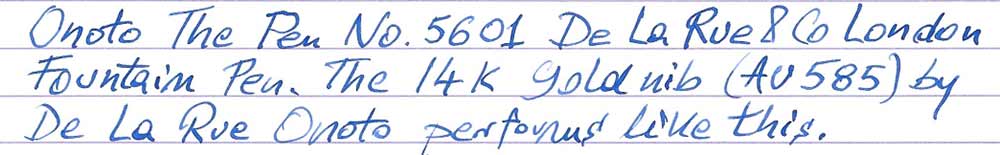 Onoto The Pen No. 5601 De La Rue & Co London
Fountain Pen. The 14K gold nib (AU 585) by
De La Rue Onoto performs like this.